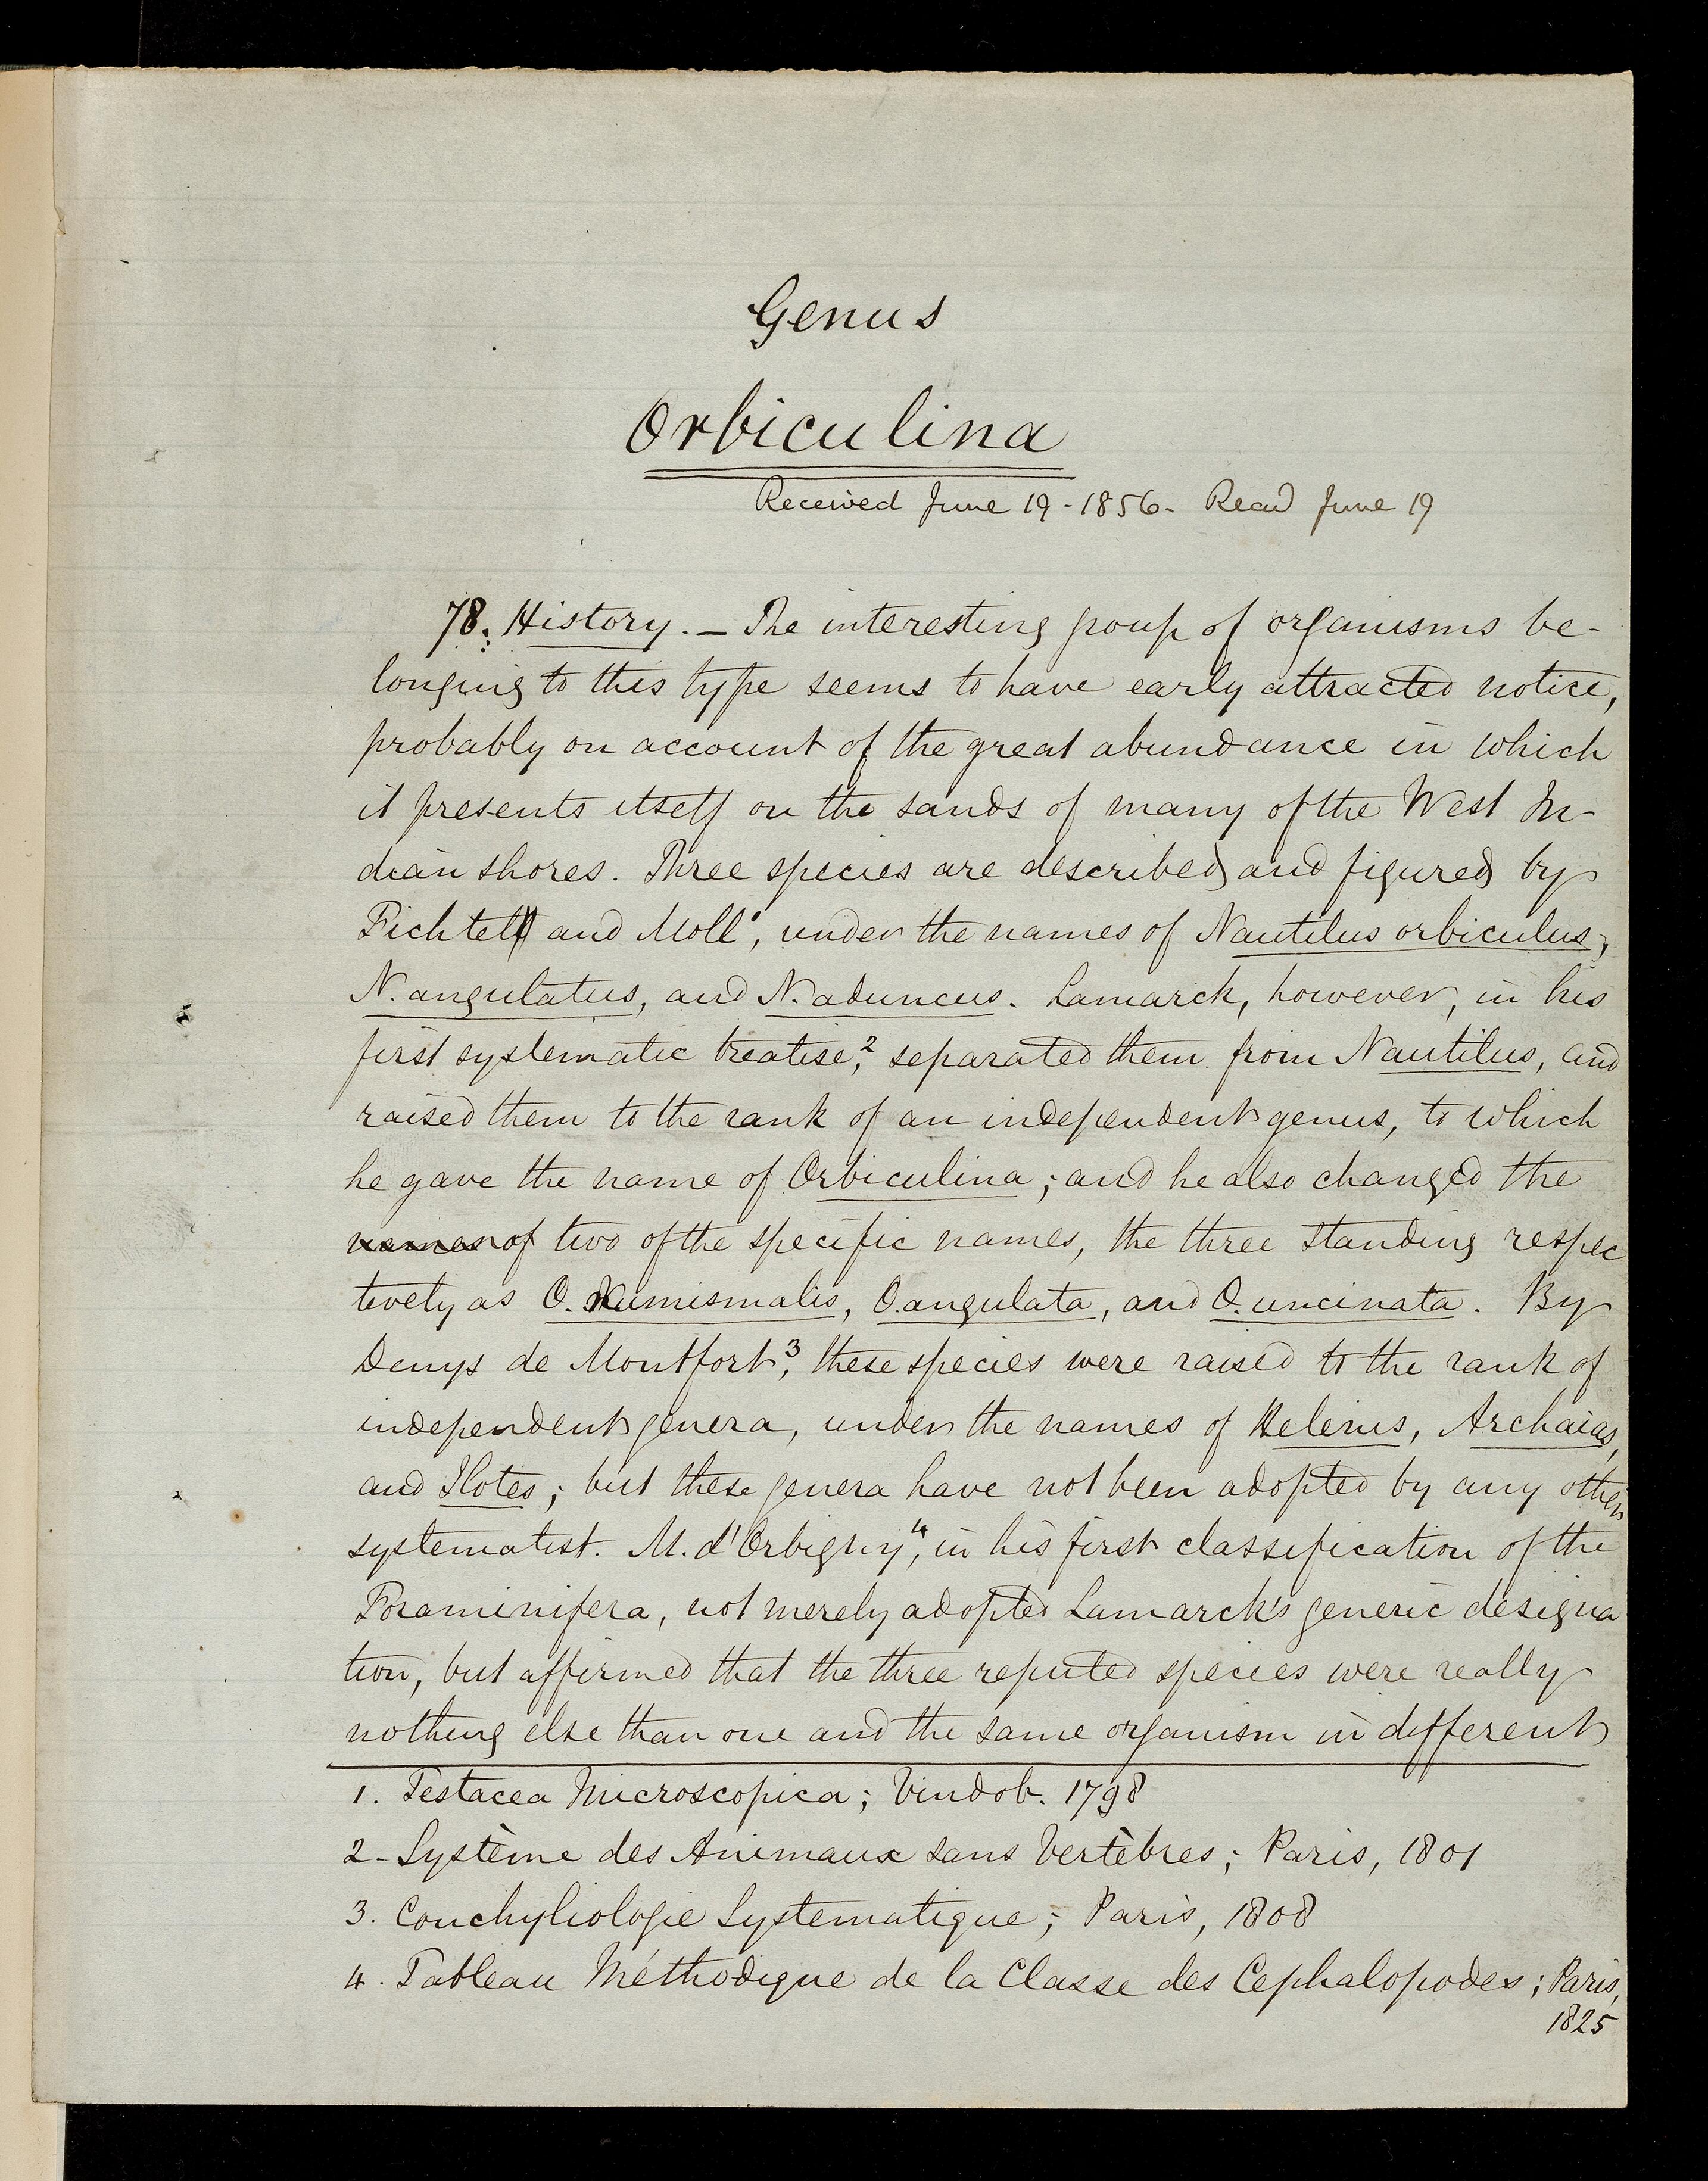 Genus
Orbiculina
Received June 19 - 1856 - Read June 19
78. History. — The interesting group of organisms be-
longing to this type seems to have early attracted notice,
probably on account of the great abundance in which
it presents itself on the sands of many of the West In-
dian shores. Three species are described and figured by
Fichtel and Moll¹, under the names of Nautilus orbiculus,
N. angulatus, and N. aduncus. Lamarck, however, in his
first systematic treatise,² separated them from Nautilus, and
raised them to the rank of an independent genus, to which
he gave the name of Orbiculina; and he also changed the
names of two of the specific names, the three standing respec
tively as O. numismalis, O. angulata, and O. uncinata. By
Denys de Montfort³, these species were raised to the rank of
independent genera, under the names of Helenus, Archaias,
and Ilotes; but these genera have not been adopted by any other
systematist. M. d'Orbigny⁴, in his first classification of the
Foraminifera, not merely adopted Lamarck's generic designa
tion, but affirmed that the three reputed species were really
nothing else than one and the same organism in different
1. Testacea Microscopica; Vindob. 1798
2 - Système des Animaux sans Vertèbres; Paris, 1801
3. Conchyliologie Systematique; Paris, 1808
4. Tableau Méthodique de la Classe des Cephalopodes; Paris,
1825